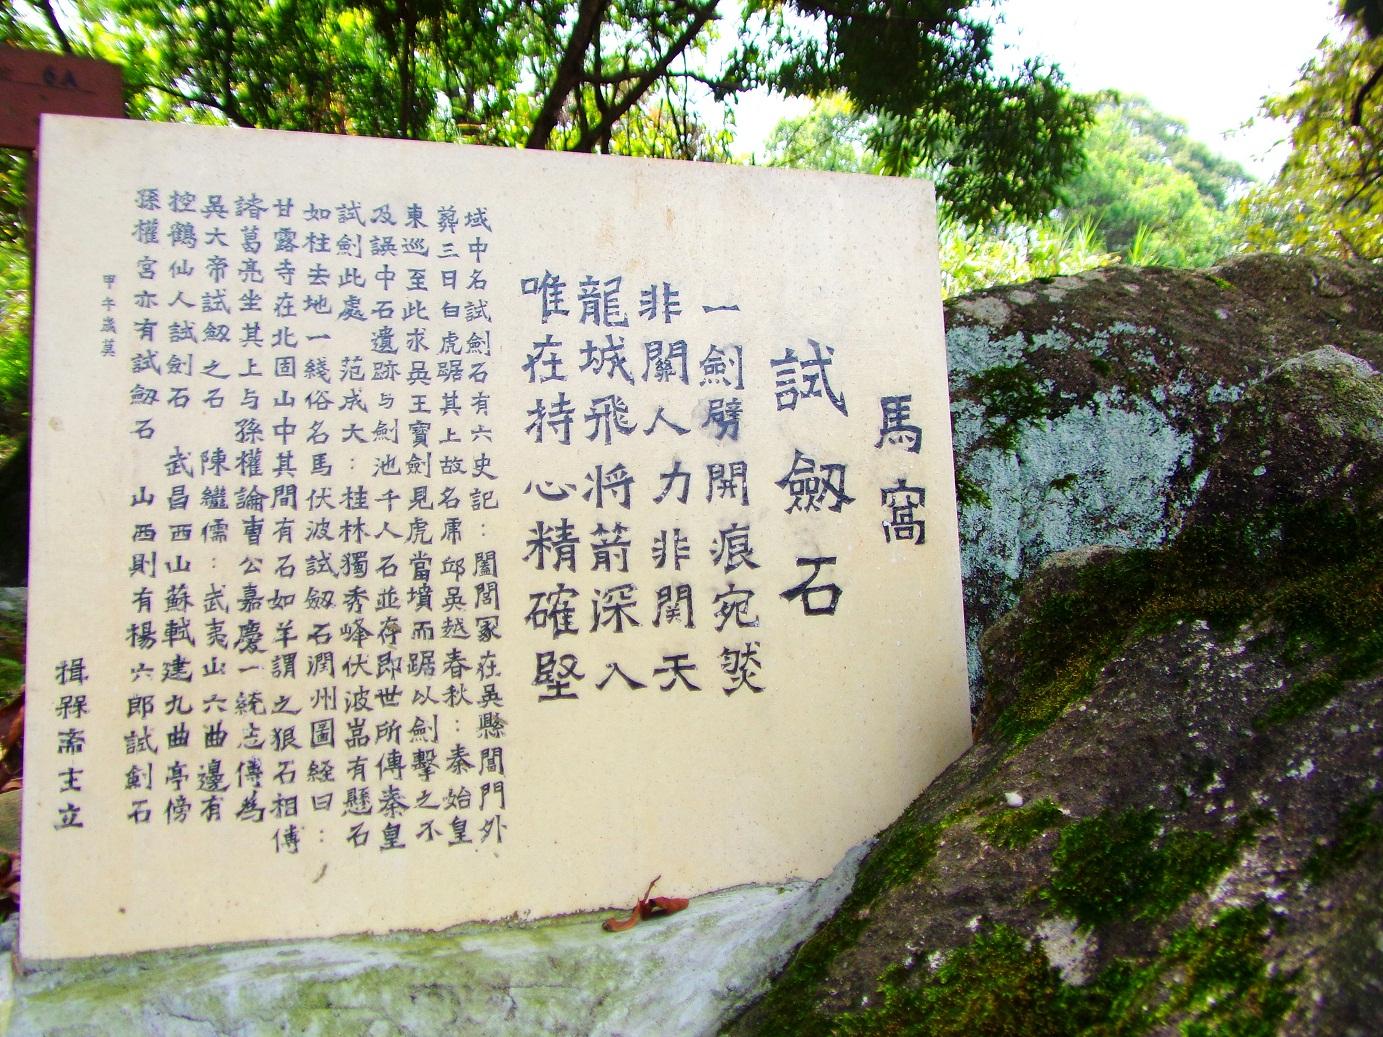 馬窩
試劔石
一劍劈開痕宛然
非關人力非関天
龍城飛將箭深入
唯在持心精確堅
域中名試劍石有六史記：闔閭冢在吳縣閶門外
葬三日白虎踞其上故名虎邱吳越春秋：秦始皇
東巡至此求吳王寶劍見虎當墳而踞以劍擊之不
及誤中石遺跡与劍池千人石並存即世所傳秦皇
試劍此處　范成大：桂林獨秀峰伏波嵓有懸石
如柱去地一綫俗名馬伏波試劔石潤州圖經曰：
甘露寺在北固山中其間有石如羊謂之狠石相傳
諸葛亮坐其上与孫權論曹公嘉慶一統志傳為
吳大帝試劔之石　陳繼儒：武夷山六曲邊有
控鶴仙人試劍石　武昌西山蘇軾建九曲亭傍
孫權宮亦有試劔石　山西則有楊六郎試劍石
甲午歲莫
揖槑齋主立
6A